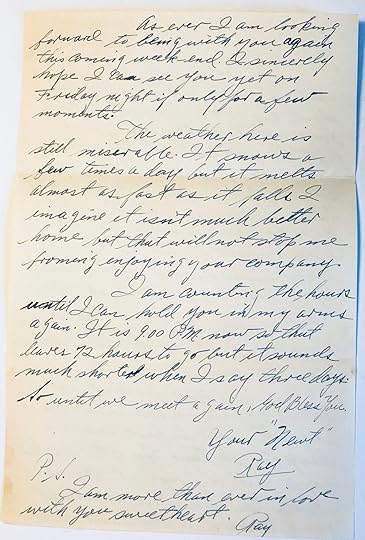 As ever I am looking
forward to being with you again
this coming week-end. I sincerely
hope I can see you yet on
Friday night if only for a few
moments.
The weather here is
still miserable. It snows a
few times a day but it melts
almost as fast as it falls. I
imagine it isn't much better
home but that will not stop me
from enjoying your company.
I am counting the hours
until I can hold you in my arms
again. It is 9:00 P.M. now so that
leaves 72 hours to go but it sounds
much shorter when I say three days.
So until we meet again, God Bless You.
Your "Newt"
Ray
P.S.
I am more than ever in love
with you sweetheart. Ray